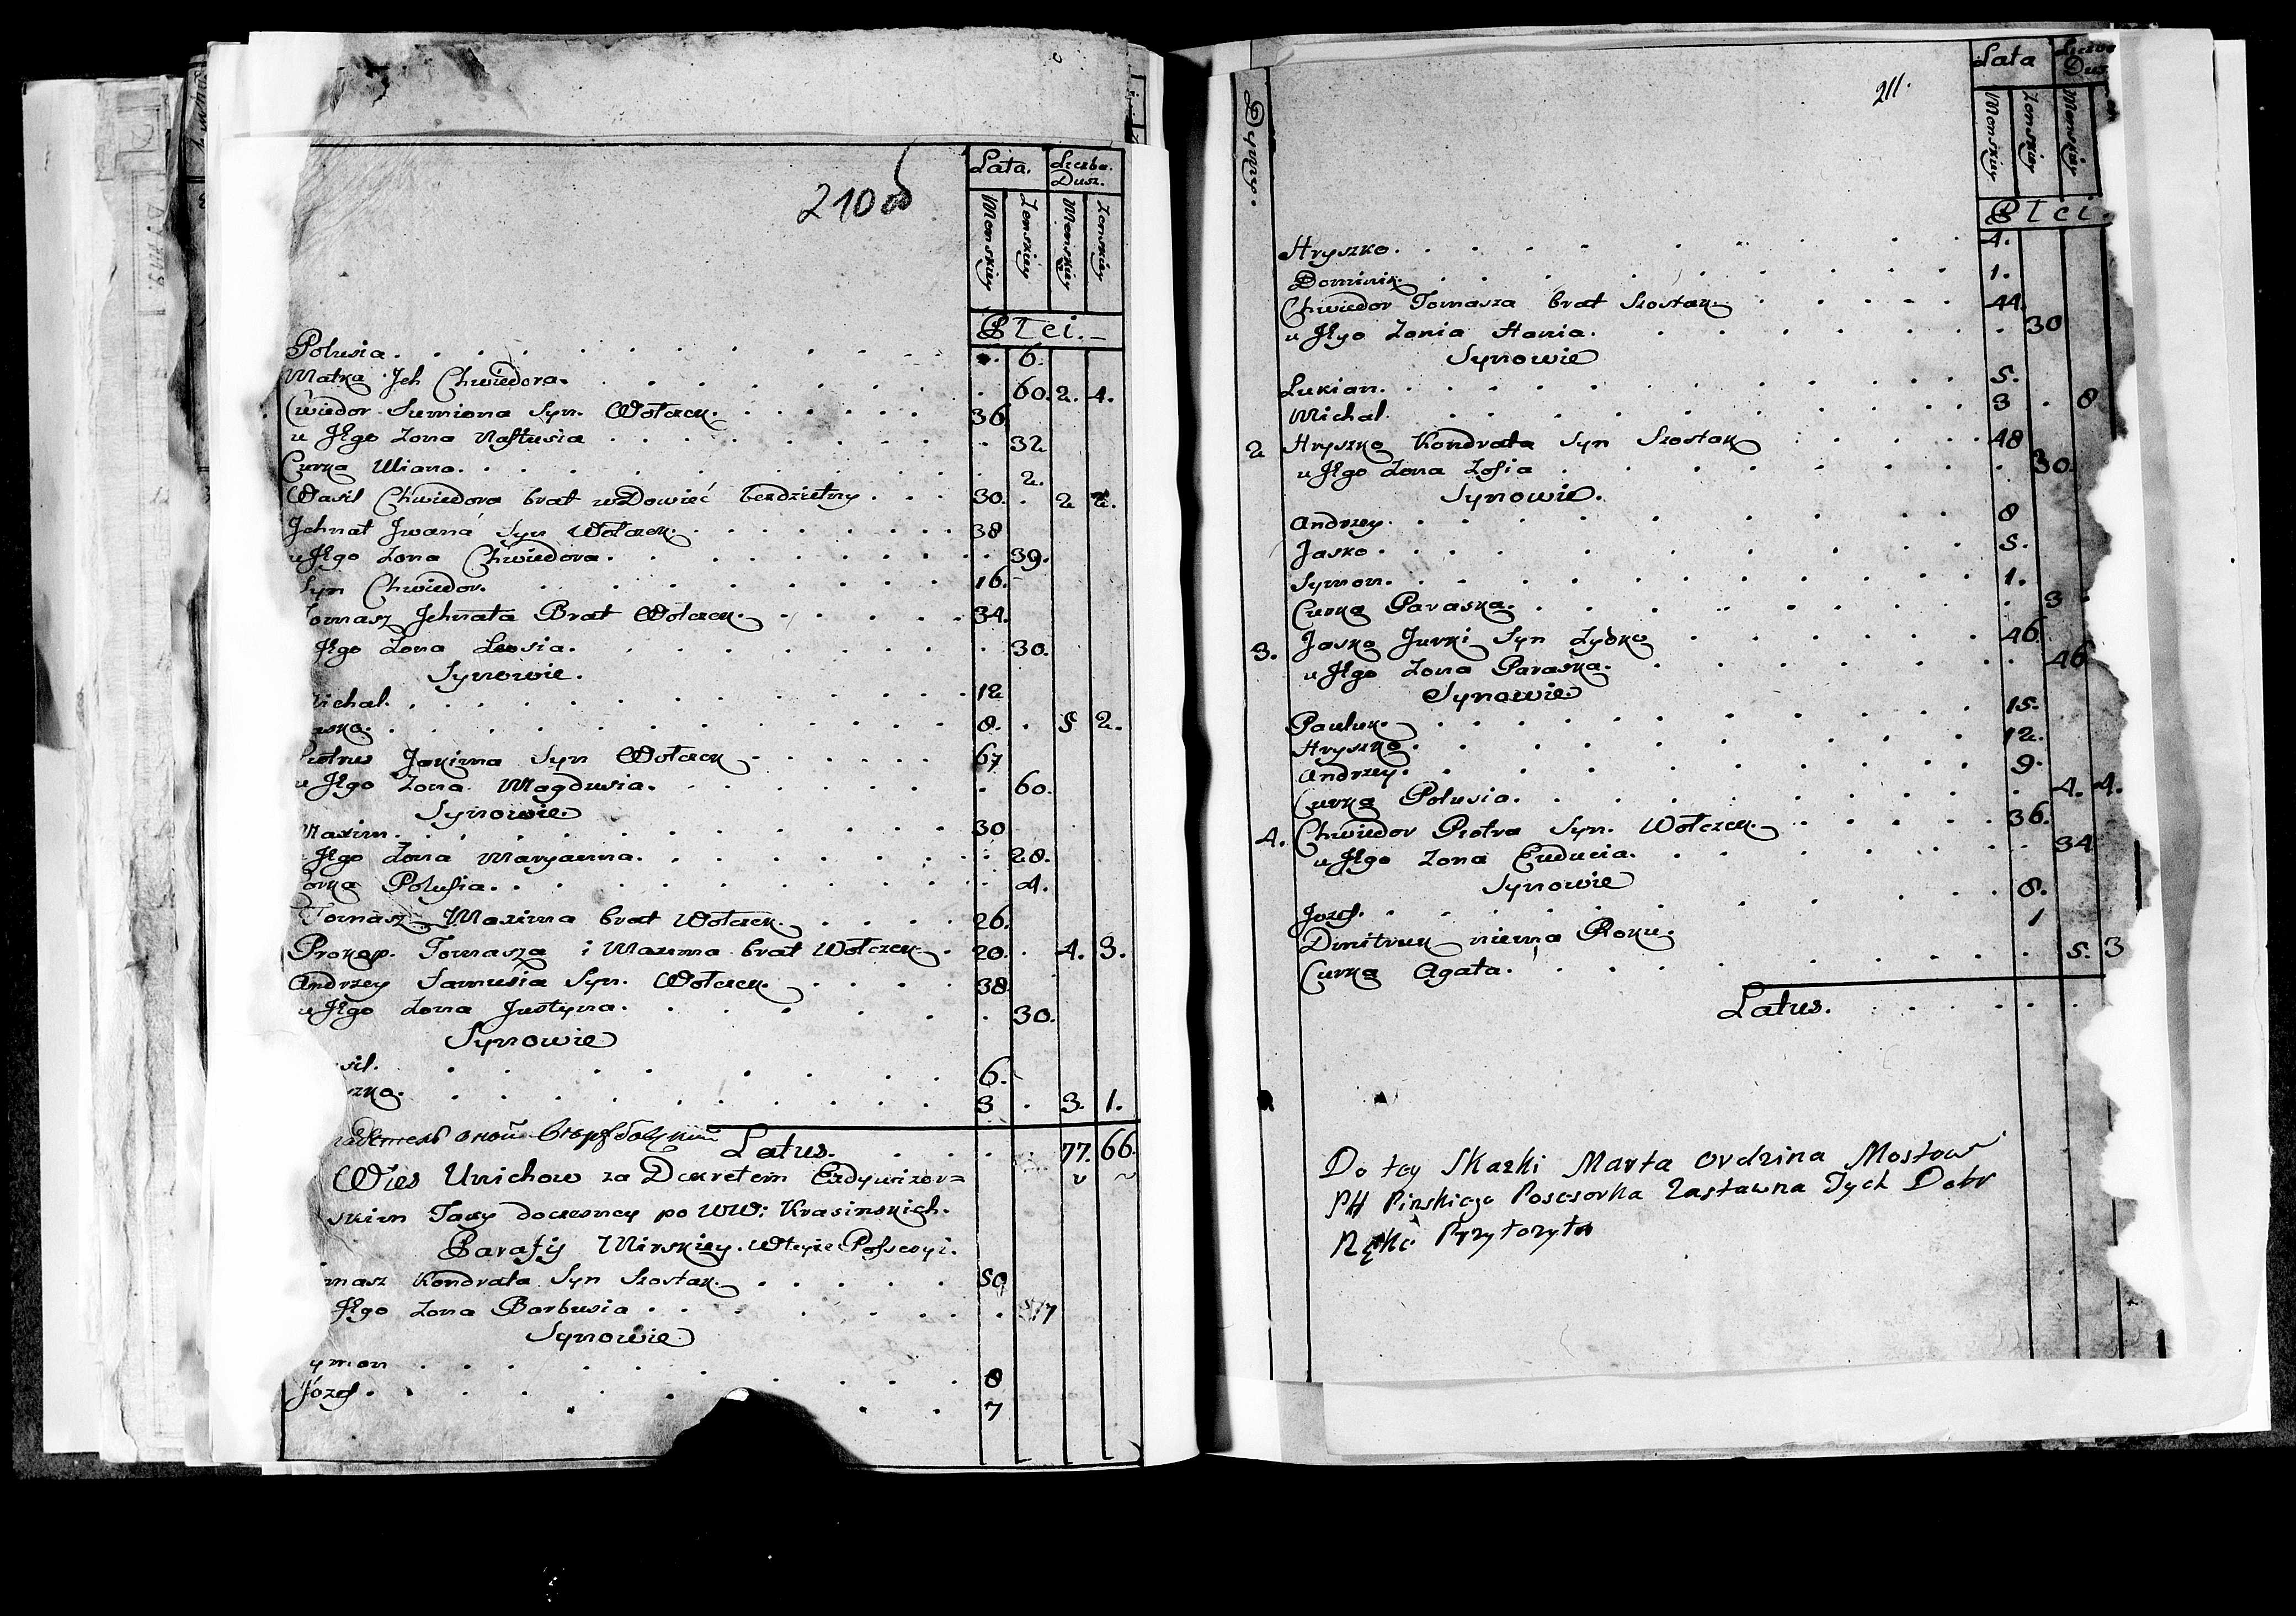 210 об
Lata. Liczba Dusz.
Męnskiey Zenskiey Męnskiey Zenskiey
Płci.
Połusia. 6.
Matka Jch Chwiedora. 60. 2. 4.
Ćwiedor Siemiona Syn. Wołczek. 36
u Jego Zona Nastusia 32
Curka Uliana. 2.
Wasil Chwiedora brat wdowieć bezdzietny 30. 2 2.
Jchnat Jwana Syn Wołczek. 38
u Jego Zona Chwiedora. 39.
Syn Chwiedor. 16.
omasz Jchnata Brat Wołczek. 34.
Jego Zona Lewsia. 30.
Synowie.
ichal. 12
8. 5 2.
Jakima Syn Wołczek 67
u Jego Zona Magdusia. 60.
Synowie
Maxim. 30
Jego Zona Maryanna. 28.
Połusia. 4.
Tomasz Maxima brat Wołczek. 26.
Prokop. Tomasza i Maxima brat Wołczek 20. 4. 3.
Andrzey Samusia Syn. Wołczek. 38
u Jego Zona Justyna. 30.
Synowie
sil. 6.
szko. 3 3. 1.
Latus. 77. 66.
Wies Unichow za Dekretem Exdywizor=
skim Taxy doczesney po WW: Krasinskich.
Parafij Mirskiey. Wteyże Possesyi.
masz Kondrata Syn Szostak 50
Jego Zona Barbusia
Synowie
ymon 8
Józef. 7
211.
Dymy.
Lata Liczba Dus
Męnskiey Zenskiey Męnskiey
Płci.
Hryszko. 4.
Dominik. 1.
Chwiedor Tomasza brat Szostak 44.
u Jego Zonia Hania. 30
Synowie
Lukian. 5.
Michal. 3 8
2 Hryszko Kondrata Syn Szostak 48
u Jego Zona Zofia 30.
Synowie.
Andrzey. 8
Jasko. 5.
Symon. 1.
Curka Paraska. 3
3. Jasko Jurki Syn Zydko 46.
u Jego Zona Paraska. 46
Synowie
Pauluk. 15.
Hryszko. 12.
Andrzey. 9.
Curka Połusia. 4. 4.
4. Chwiedor Piotra Syn. Wołczek. 36.
u Jego Zona Euducia. 34
Synowie
Jozef. 8.
Dmitruk niema Roku. 1
Curka Agata. 5. 3
Latus.
Do tey Skazki Marta Ordzina Mostow
PH Pinskiego Possesorka Zastawna Tych Dobr
Ręką Przyłożyła